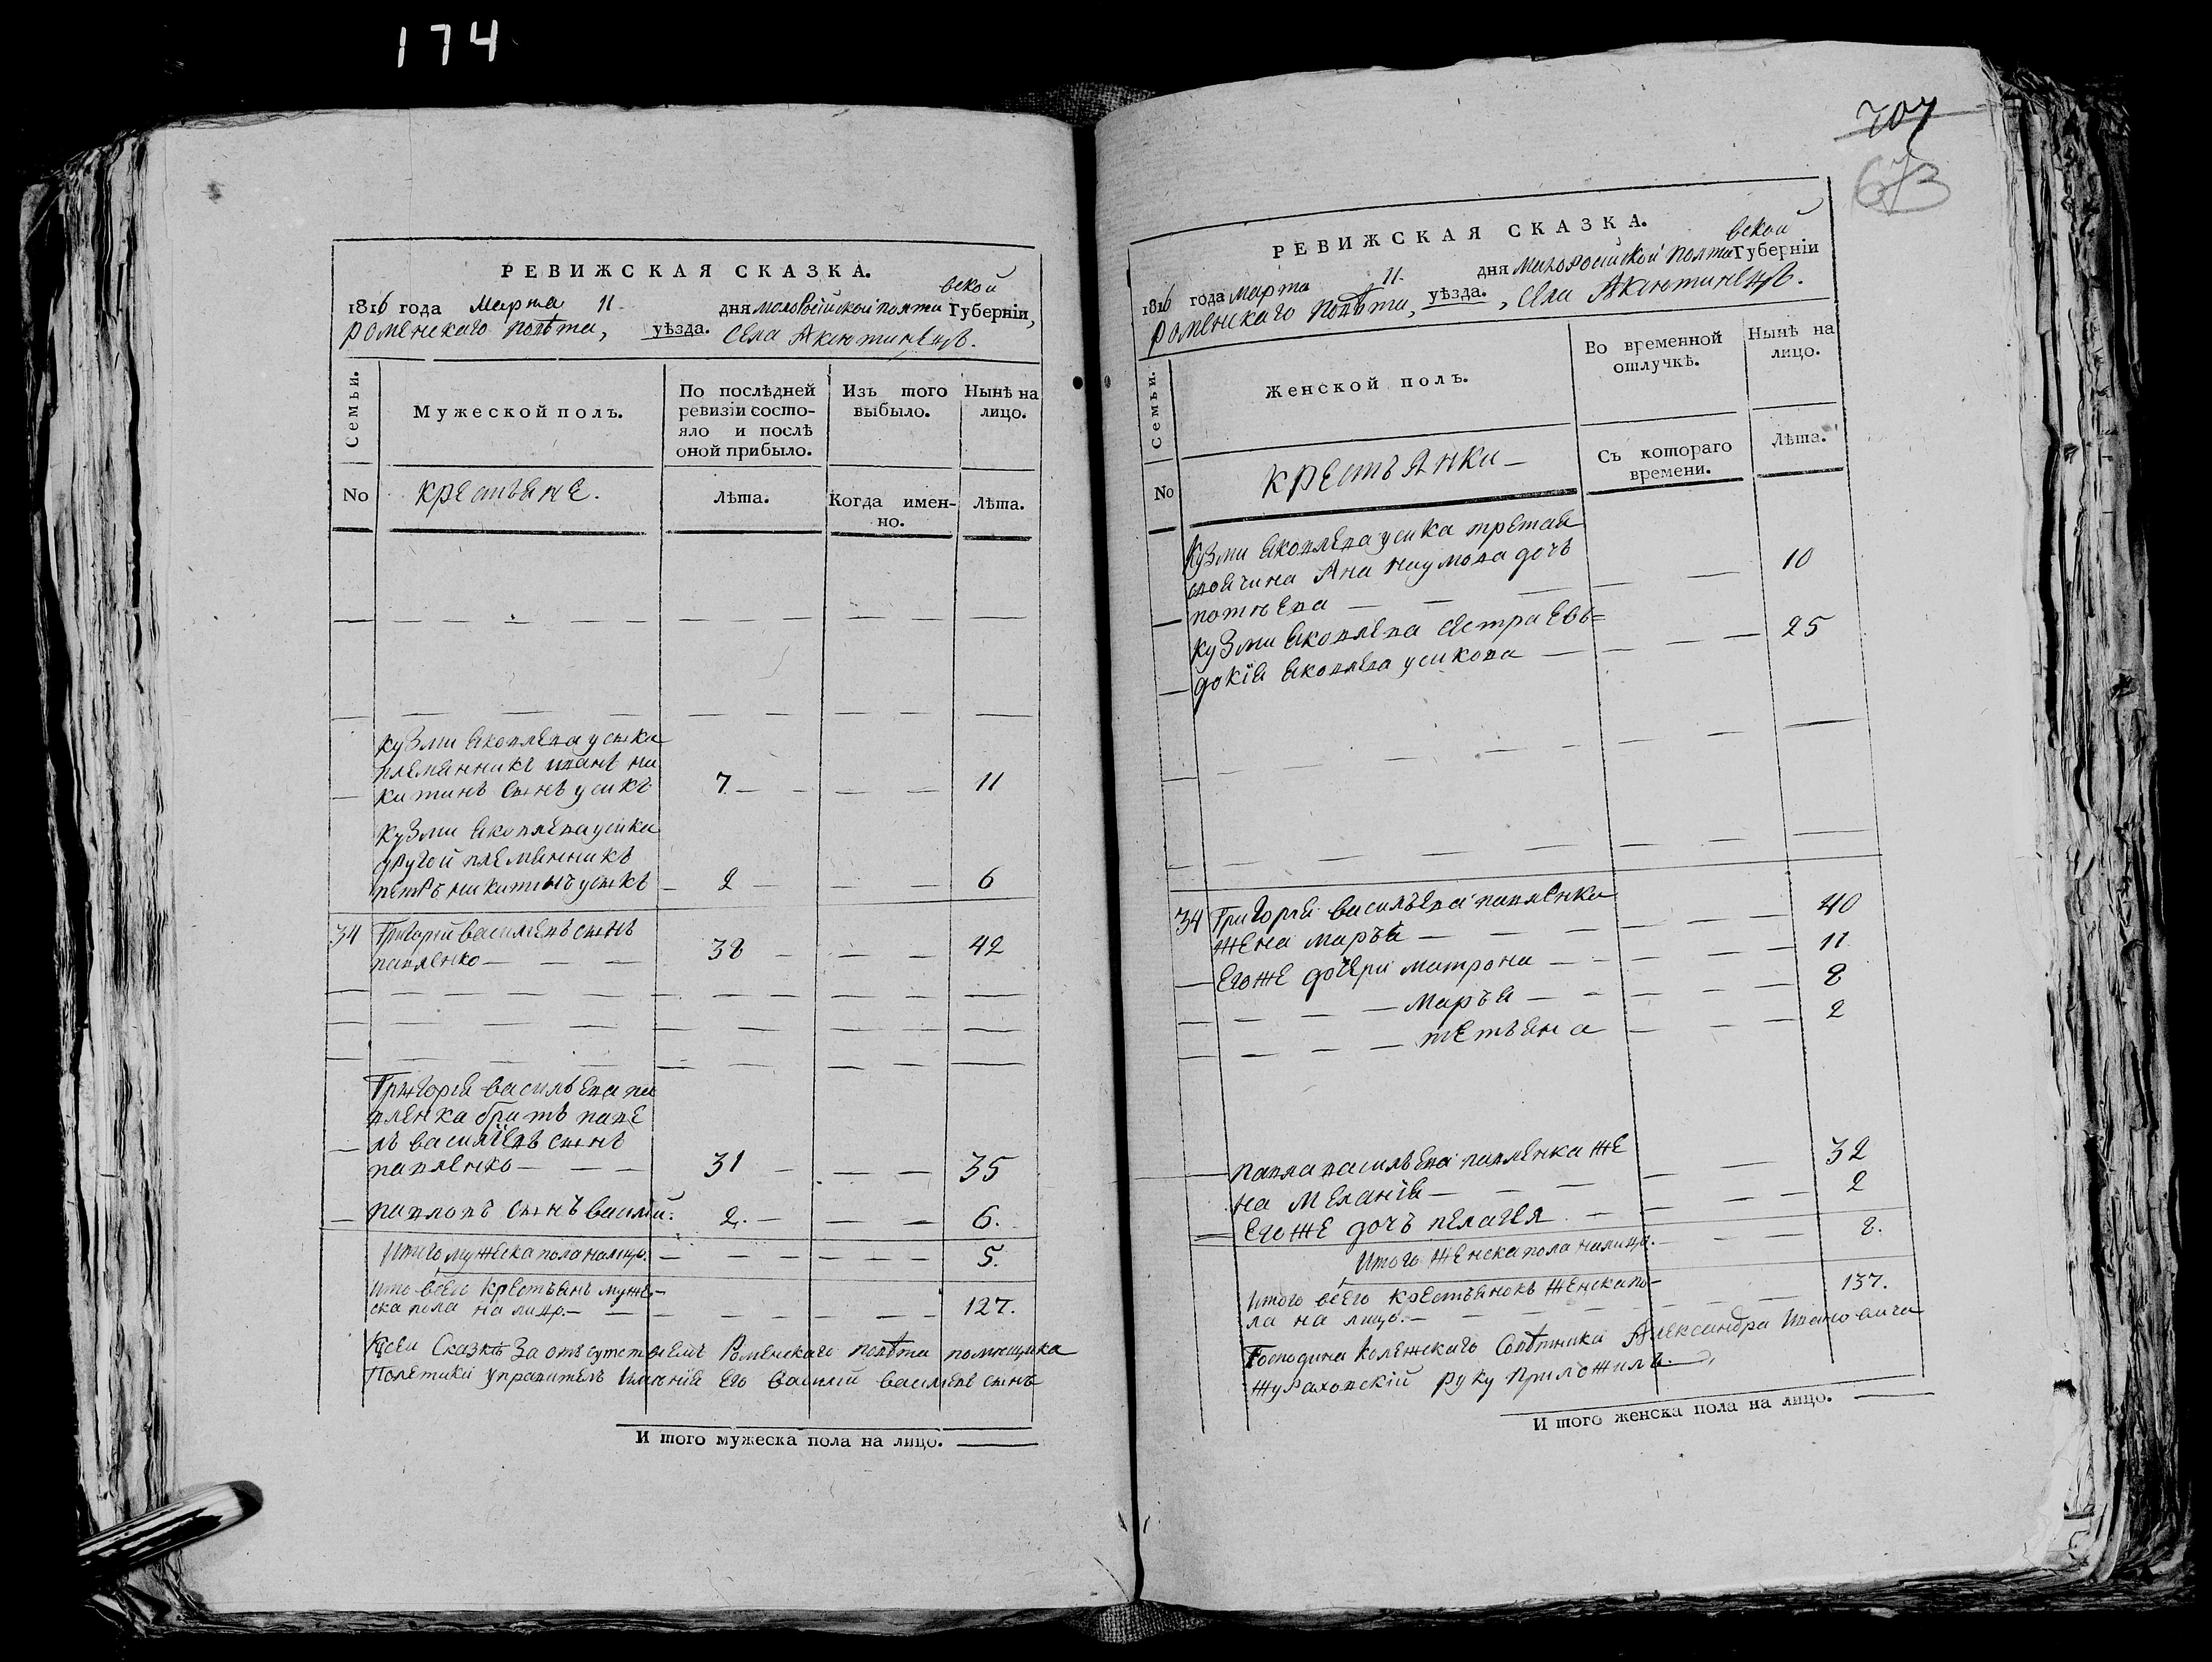 174
РЕВИЖСКАЯ СКАЗКА.
вской
1816 года Марта 11. дня Малоросійской Полта Губерніи,
Роменскаго повѣта, уѣзда. Села Аксютинецъ.
Семьи.
Мужеской полъ.
По послѣдней ревизіи состо-
яло и послѣ
оной прибыло.
Изъ того
выбыло.
Нынѣ на
лицо.
No
крестьяне.
Лѣта.
Когда имен-
но.
Лѣта.
кузми яковлева усика
племянникъ иванъ ни
китинъ сынъ усикъ 7 11
кузми яковлева усика
другой племянникъ
петръ никитинъ усикъ 2 6
34 Григорий василевъ сынъ
павленко 38 42
Григорія васильева па
вленка братъ паве
лъ василіевъ сынъ
павленко 31 35
павловъ сынъ василій. 2. 6.
Итого мужеска пола налицо. 5.
Итого всего крестьянъ муже-
ска пола на лицо. 127.
К сей Сказкѣ За отъсутствіемъ Роменскаго повѣта помещика
Полетики управитель Имѣнія Его Василій василевъ сынъ
И того мужеска пола на лицо.
707
673
РЕВИЖСКАЯ СКАЗКА.
вской
1816 года Марта 11. дня Малоросійской Полта Губерніи
Роменскаго Повѣта, уѣзда. , Села Аксютинецъ.
Семьи.
Женской полъ.
Во временной
отлучкѣ.
Нынѣ на
лицо.
No
крестьянки
Съ котораго
времени.
Лѣта.
Кузми яковлева усика третая
своячина Ана наумова дочь 10
кузми яковлева сестра Евъ=
докія яковлева усикова 25
34 Григорія васильева павленка
жена марья 40
Егоже дочери матрона 11
марья 8
тетьяна 2
павла васильева павленка же
на меланія 32
Егоже дочь пелагея 2
Итого женска пола налицо. 8.
Итого всего крестьянокъ женска по-
ла на лицо. 137.
Господина колежскаго Совѣтника Александра Ивановича
Жураховскій руку приложилъ.
И того женска пола на лицо.